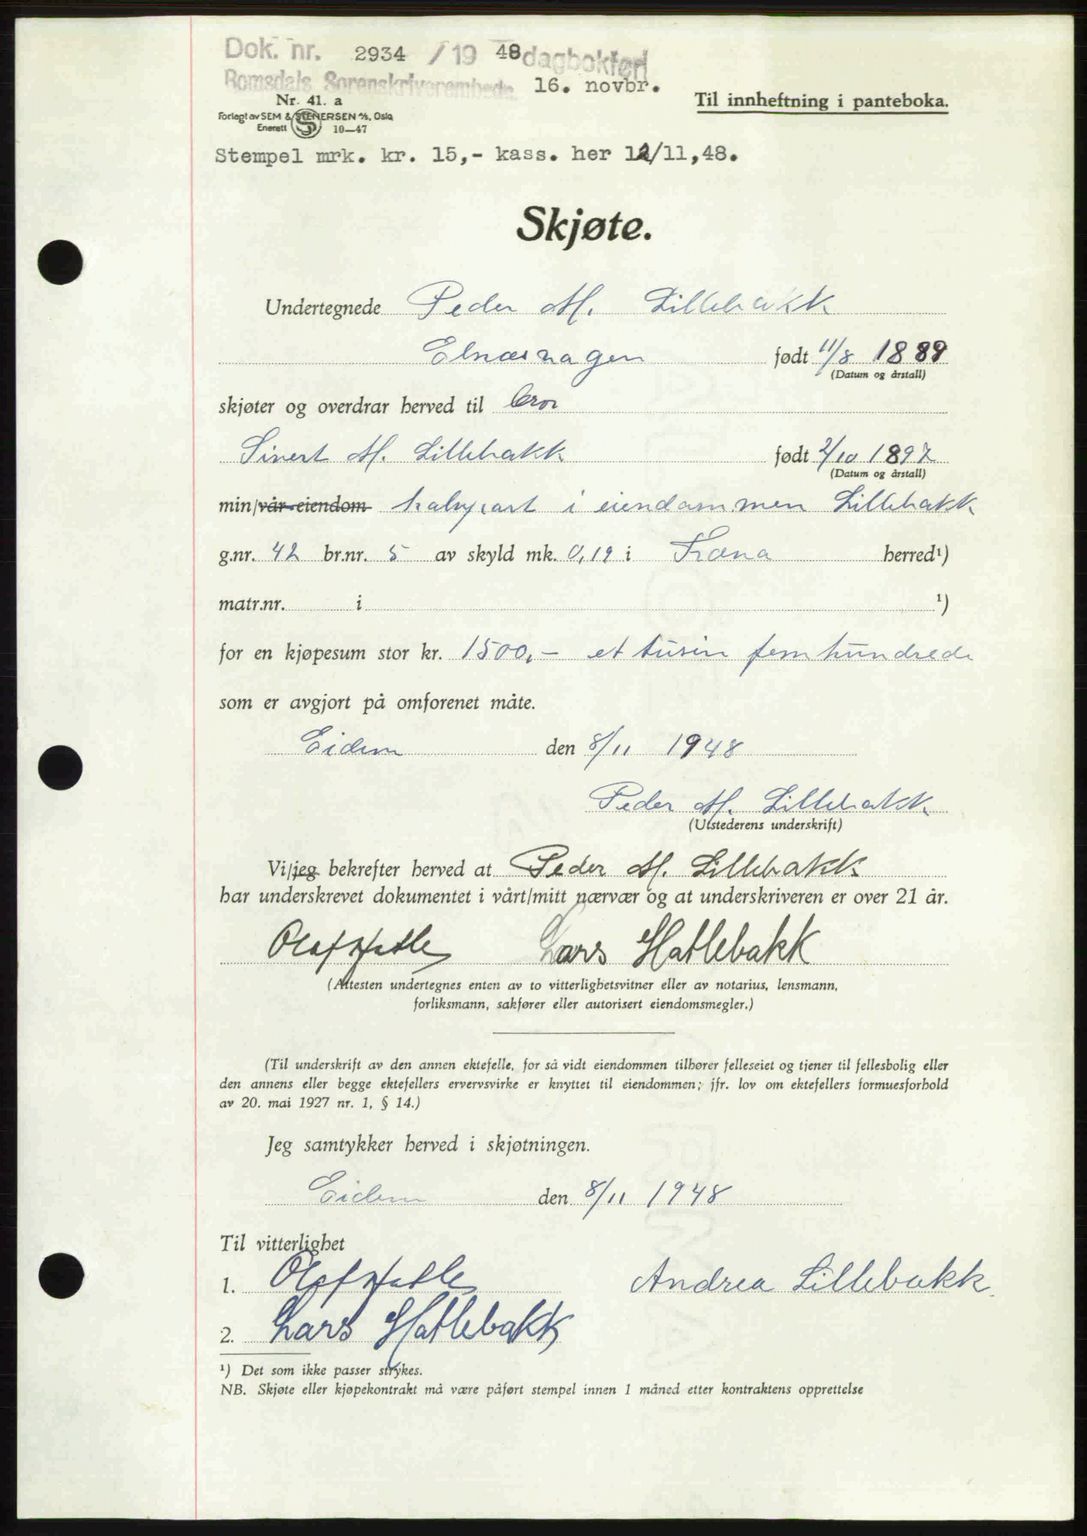 Dok. nr. 2934 / 19 48 dagbokført
Romsdals Sorenskriverembede 16. novbr.
Nr. 41. a
Forlagt av SEM & STENERSEN A/S, Oslo
Enerett S 10—47
Til innheftning i panteboka.
Stempel mrk. kr. 15,- kass. her 12/11,48.
Skjøte.
Undertegnede Peder M. Lillebakk
Elnesvagen født 11/8 1889
(Datum og årstall)
skjøter og overdrar herved til bror
Sivert M. Lillebakk født 2/10 1897
(Datum og årstall)
min/vår eiendom halvpart i eiendommen Lillebakk
g.nr. 42 br.nr. 5 av skyld mk. 0,19 i Fræna herred¹)
matr.nr. i ¹)
for en kjøpesum stor kr. 1500,- et tusin femhundrede
som er avgjort på omforenet måte.
Eidem den 8/11 1948
Peder M. Lillebakk
(Utstederens underskrift)
Vi/jeg bekrefter herved at Peder M. Lillebakk
har underskrevet dokumentet i vårt/mitt nærvær og at underskriveren er over 21 år.
Olaf Hatle Lars Hatlebakk
(Attesten undertegnes enten av to vitterlighetsvitner eller av notarius, lensmann,
forliksmann, sakfører eller autorisert eiendomsmegler.)
(Til underskrift av den annen ektefelle, for så vidt eiendommen tilhører felleseiet og tjener til fellesbolig eller
den annens eller begge ektefellers ervervsvirke er knyttet til eiendommen; jfr. lov om ektefellers formuesforhold
av 20. mai 1927 nr. 1, § 14.)
Jeg samtykker herved i skjøtningen.
Eidem den 8/11 1948
Til vitterlighet
1. Olaf Hatle Andrea Lillebakk
2. Lars Hatlebakk
¹) Det som ikke passer strykes.
NB. Skjøte eller kjøpekontrakt må være påført stempel innen 1 måned etter kontraktens opprettelse